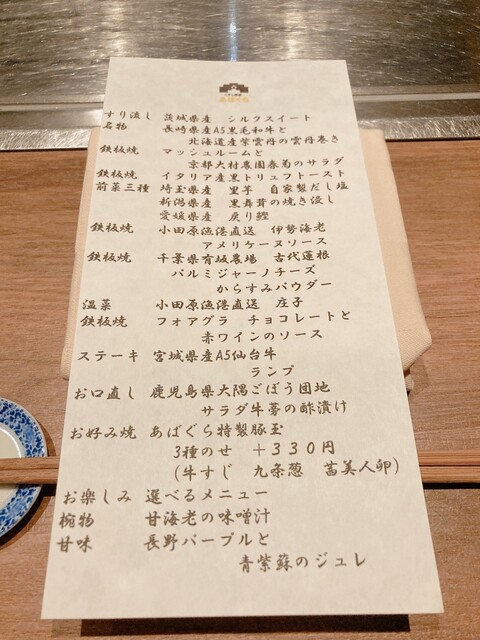 すり流し 茨城県産 シルクスイート
名物 長崎県産A5黒毛和牛と
北海道産紫雲丹の雲丹巻き
鉄板焼 マッシュルームと
京都大村農園春菊のサラダ
鉄板焼 イタリア産黒トリュフトースト
前菜三種 埼玉県産 里芋 自家製だし塩
新潟県産 黒舞茸の焼き浸し
愛媛県産 戻り鰹
鉄板焼 小田原漁港直送 伊勢海老
アメリケーヌソース
鉄板焼 千葉県有坂農場 古代蓮根
パルミジャーノチーズ
からすみパウダー
温菜 小田原漁港直送 庄子
鉄板焼 フォアグラ チョコレートと
赤ワインのソース
ステーキ 宮城県産A5仙台牛
ランプ
お口直し 鹿児島県大隅ごぼう団地
サラダ牛蒡の酢漬け
お好み焼 あばぐら特製豚玉
3種のせ +330円
(牛すじ 九条葱 茜美人卵)
お楽しみ 選べるメニュー
椀物 甘海老の味噌汁
甘味 長野パープルと
青紫蘇のジュレ